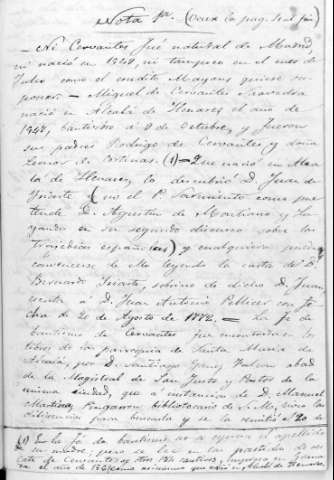 Nota 1ª. (Véase la pag.
— Ni Cervantes fué natural de Madrid,
ni nació en 1548, ni tampoco en el mes de
Julio como el erudito Mayans quiso su-
poner. — Miguel de Cervantes Saavedra
nació en Alcalá de Henares el año de
1547, bautizóse á 9 de Octubre, y fueron
sus padres Rodrigo de Cervantes y doña
Leonor de Cortinas. (1) — Que nació en Alca-
lá de Henares, lo descubrió D. Juan de
Iriarte (no el P. Sarmiento como pre-
tende D. Agustin de Montiano y Lu-
yando en su segundo discurso sobre las
tragedias españolas) y cualquiera podrá
convencerse de ello leyendo la carta de D.
Bernardo Iriarte, sobrino de dicho D. Juan,
escrita á D. Juan Antonio Pellicer con fe-
cha de 20 de Agosto de — La fe de
bautismo de Cervantes fue encontrada en los
libros de la parroquia de Santa Maria de
Alcalá, por D. Santiago Gomez Falcon abad
de la Magistral de San Justo y Pastor de la
misma ciudad, que á instancia de D. Manuel
Martinez Pingarron, bibliotecario de S. M., hizo la
diligencia para buscarla y se la remitió el 20 de
(1) En la fé de bautismo no se espresa el apellido
de su madre; pero se lee en las partidas de